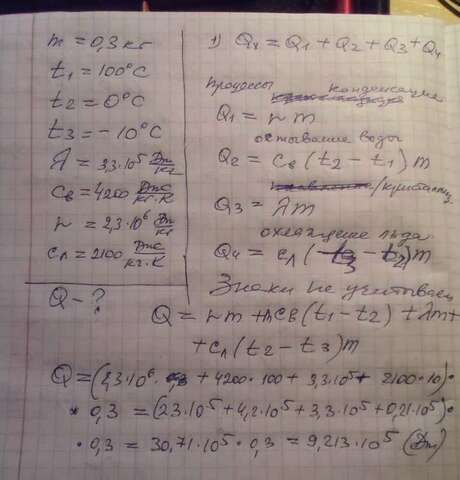 m = 0,3 кг
t₁ = 100°C
t₂ = 0°C
t₃ = -10°C
λ = 3,3·10⁵ Дж/кг
cв = 4200 Дж/кг·К
r = 2,3·10⁶ Дж/кг
cл = 2100 Дж/кг·К
Q - ?
1) Qx = Q₁ + Q₂ + Q₃ + Q₄
Процессы конденсация
Q₁ = r m
остывание воды
Q₂ = cв (t₂ - t₁) m
/кристаллиз.
Q₃ = λm
охлаждение льда
Q₄ = cл (t₃ - t₂) m
Знаки не учитываем
Q = r m + m cв (t₁ - t₂) + λm +
+ cл (t₂ - t₃) m
Q = (2,3·10⁶ + 4200·100 + 3,3·10⁵ + 2100·10)·
·0,3 = (23·10⁵ + 4,2·10⁵ + 3,3·10⁵ + 0,21·10⁵)·
·0,3 = 30,71·10⁵·0,3 = 9,213·10⁵ (Дж)